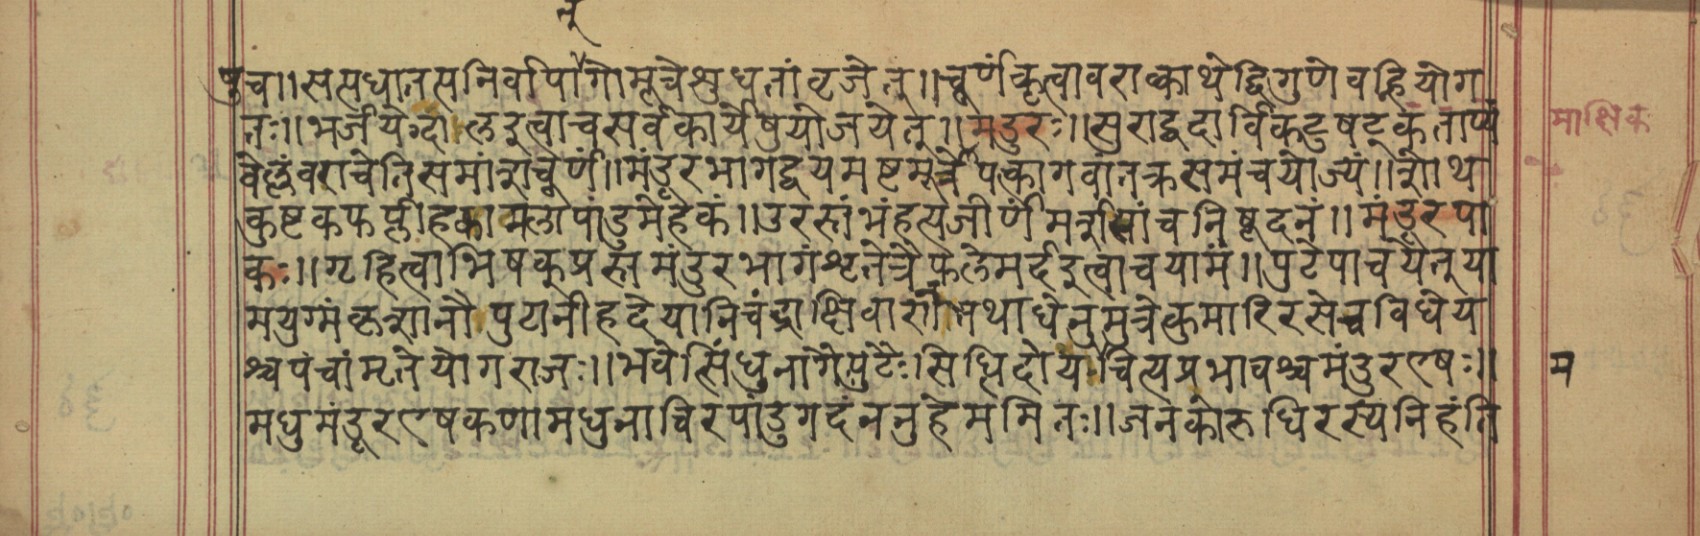 त्
षुच॥सप्तधातसनिर्वापौगोमूत्रेशुधतांव्रजेत्॥चूर्णंकृत्वावराक्काथेद्विगुणेवह्नियोग
तः॥भर्जयेन्दालदुत्वाचसर्वकार्येषुयोजयेत्॥मंडुरः॥सुराद्बदार्विकटुषट्कताप्यं
वेल्लंवराचेतिसमांत्राचूर्णं॥मंडूरभागद्वयमष्टमूत्रेपक्कागवांतक्रसमंचयोज्यं॥शोथ
कुष्टकफप्लीहकामलापांडुमेहकं॥उरस्तंभंहत्यजीर्णमर्शसांचनिषूदनं॥मंडूरपा
कः॥गृहित्वाभिषक्प्रस्तमंडुरभागंशृतेत्रैफलेमर्ददुत्वाचयामं॥पुटेपाचयेत्या
मयुग्मंकृशानौपुटानीहदेयानिचंद्राक्षिवारांतथाधेनुमुत्रेकुमारिरसेचविधेय
श्चपंचांमृतेयोगराजः॥भवेत्सिंधुनागेपुटैःसिधिदोयोचित्यप्रभावश्चमंडुरएषः॥
मधुमंडूरएषकणामधुनाचिरपांडुगदंननुंहेममितः॥जनकोरुधिरस्यनिहंति
माक्षिक
म